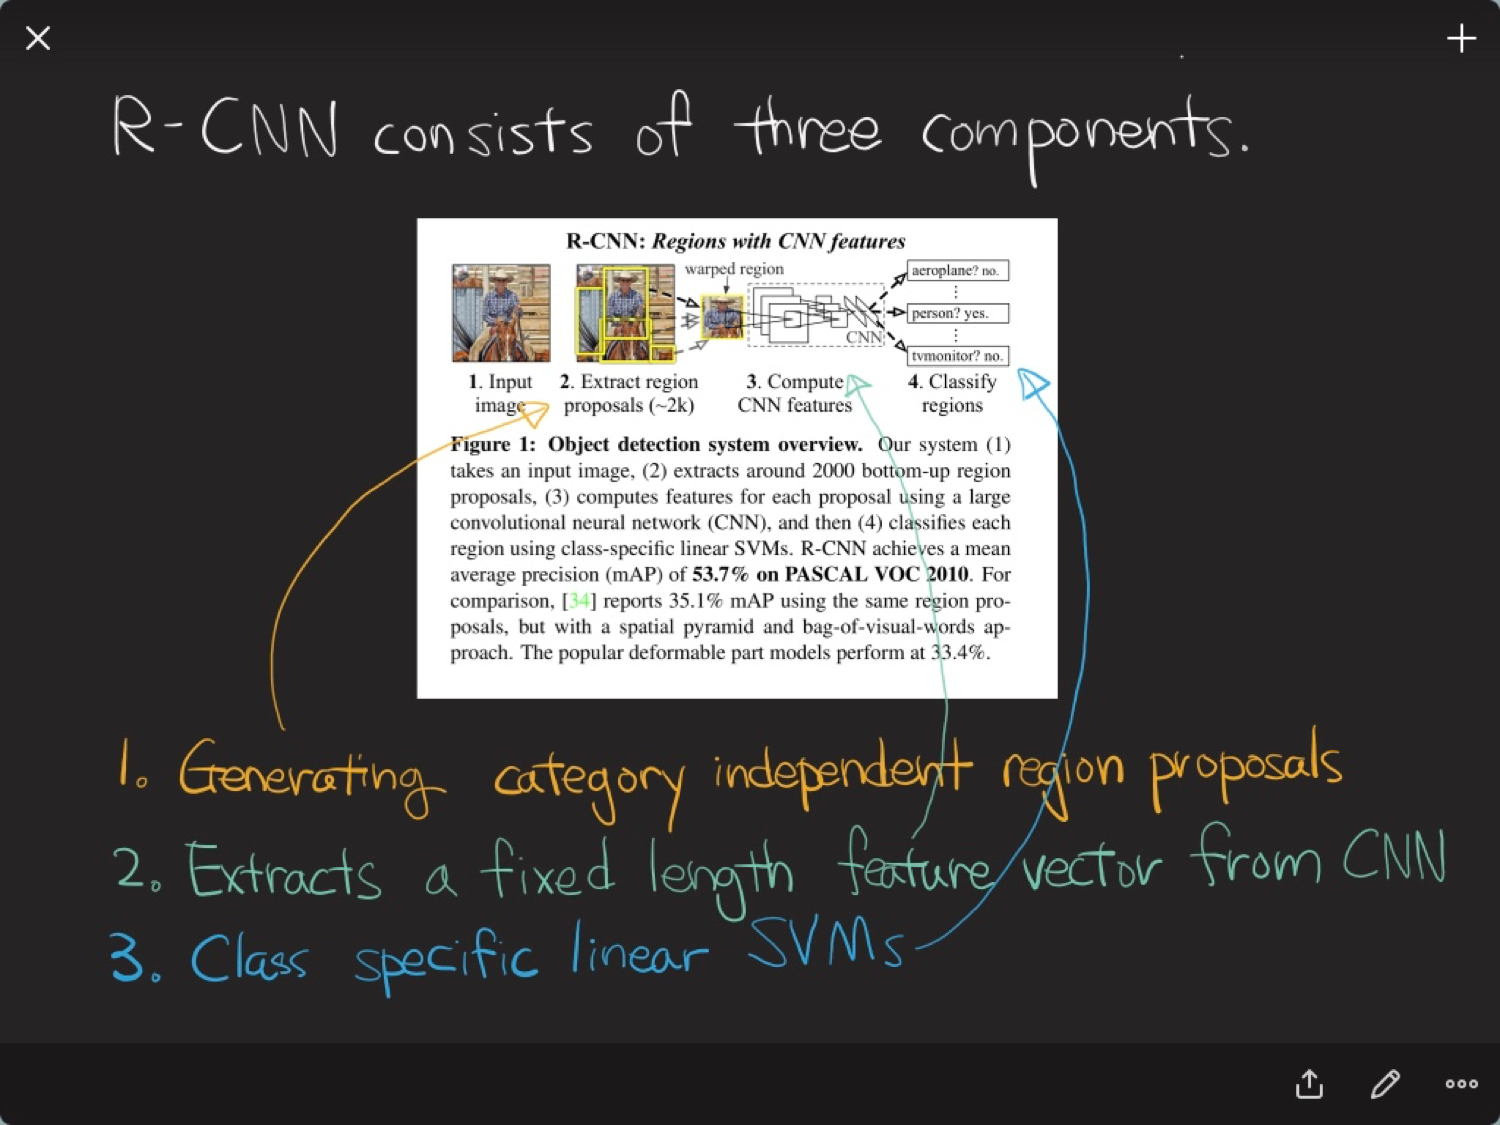 R-CNN consists of three components.
R-CNN: Regions with CNN features
warped region
aeroplane? no.
person? yes.
CNN
tvmonitor? no.
1. Input image
2. Extract region proposals (~2k)
3. Compute CNN features
4. Classify regions
Figure 1: Object detection system overview. Our system (1)
takes an input image, (2) extracts around 2000 bottom-up region
proposals, (3) computes features for each proposal using a large
convolutional neural network (CNN), and then (4) classifies each
region using class-specific linear SVMs. R-CNN achieves a mean
average precision (mAP) of 53.7% on PASCAL VOC 2010. For
comparison, [34] reports 35.1% mAP using the same region pro-
posals, but with a spatial pyramid and bag-of-visual-words ap-
proach. The popular deformable part models perform at 33.4%.
1. Generating category independent region proposals
2. Extracts a fixed length feature vector from CNN
3. Class specific linear SVMs